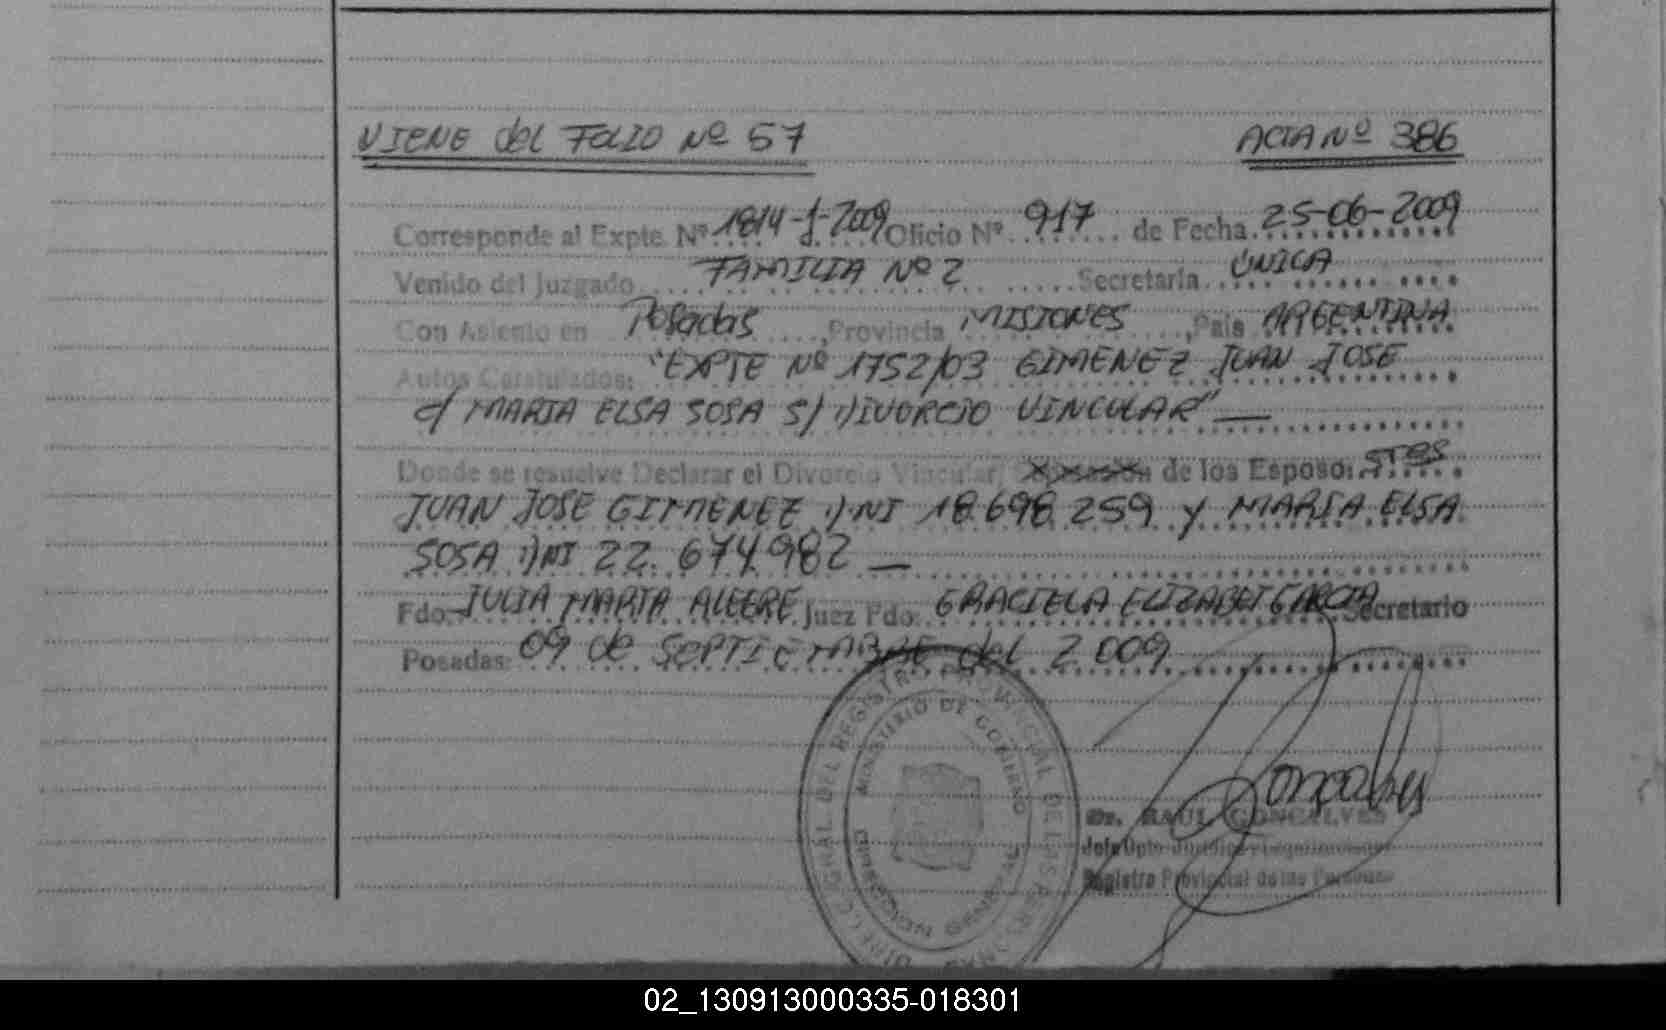 VIENE del FOLIO Nº 57 ACTA Nº 386
Corresponde al Expte. Nº 1814-J-2009 Oficio Nº 917 de Fecha 25-06-2009
Venido del Juzgado FAMILIA Nº 2 Secretaria ÚNICA
Con Asiento en Posadas, Provincia MISIONES, Pais ARGENTINA
Autos Caratulados: "EXPTE Nº 1752/03 GIMENEZ JUAN JOSE
c/ MARIA ELSA SOSA S/ DIVORCIO VINCULAR" —
Donde se resuelve Declarar el Divorcio Vincular, de los Esposo: STES
JUAN JOSE GIMENEZ DNI 18.698.259 Y MARIA ELSA
SOSA DNI 22.674.982 —
Fdo. JULIA MARTA ALEGRE Juez Fdo. GRACIELA ELIZABET GARCIA Secretario
Posadas: 09 de SEPTIEMBRE del 2.009
DIRECC. GRAL. DEL REGISTRO PROVINCIAL DE LAS PERSONAS
MINISTERIO DE GOBIERNO
Dr. RAUL GONCALVES
Jefe Dpto. Jurídico
Registro Provincial de las Personas
02_130913000335-018301